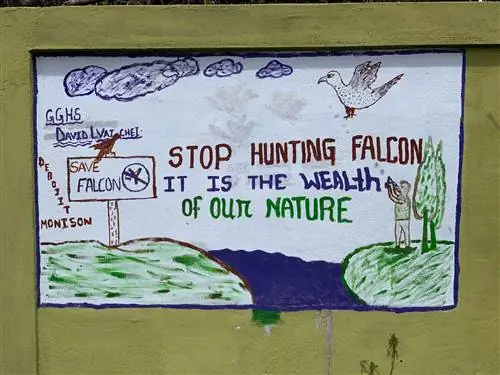 GGHS
DAVID LVAICHEI
DEBOJIT
MONISON
SAVE
FALCON
STOP HUNTING FALCON
IT IS THE WEALTH
OF OUR NATURE